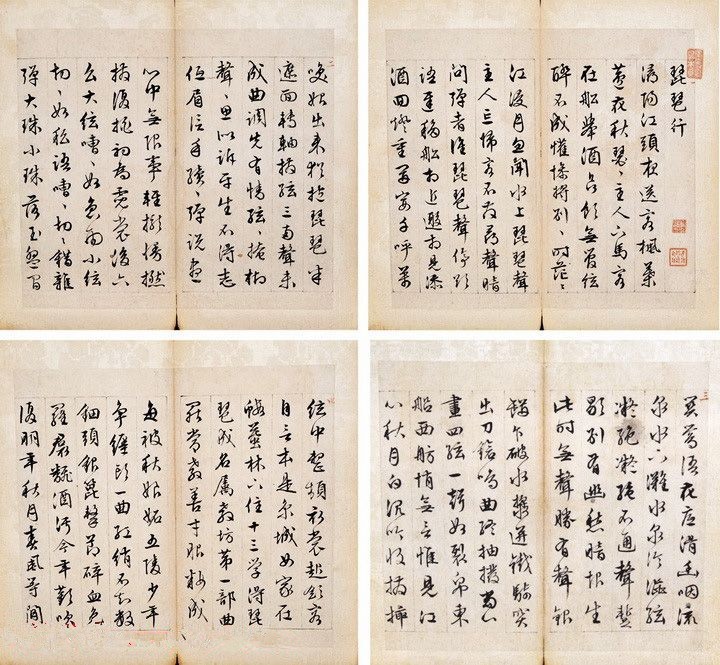 琵琶行
潯陽江頭夜送客楓葉
荻花秋瑟〻主人下馬客
在船舉酒欲飲無管絃
醉不成懽慘將別〻時茫〻
江浸月忽聞水上琵琶聲
主人忘歸客不發尋聲暗
問彈者誰琵琶聲停欲
語遲移船相近邀相見添
酒回燈重開宴千呼萬
喚始出來猶抱琵琶半
遮面轉軸撥絃三兩聲未
成曲調先有情絃〻掩抑
聲〻思似訴平生不得志
低眉信手續〻彈說盡
心中無限事輕攏慢撚
撥復挑初為霓裳後六
么大絃嘈〻如急雨小絃
切〻如私語嘈〻切〻錯雜
彈大珠小珠落玉盤間
關鶯語花底滑幽咽流
泉水下灘水泉冷澀絃
凝絕凝絕不通聲暫
歇別有幽愁暗恨生
此時無聲勝有聲銀
瓶乍破水漿迸鐵騎突
出刀鎗鳴曲終抽撥當心
畫四絃一聲如裂帛東
船西舫悄無言惟見江
心秋月白沉吟收撥插
絃中整頓衣裳起斂容
自言本是京城女家在
蝦蟇陵下住十三學得琵
琶成名屬教坊第一部曲
罷常教善才服粧成
每被秋娘妬五陵少年
爭纏頭一曲紅綃不知數
鈿頭銀篦擊節碎血色
羅裙翻酒污今年歡笑
復明年秋月春風等閒